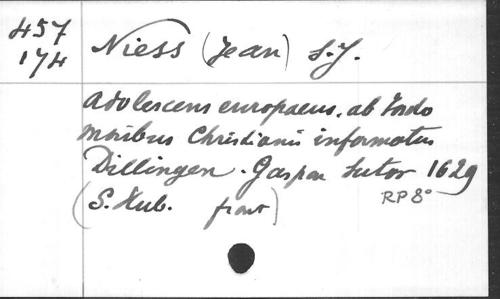 457
174
Niess (Jean) S.J.
Adolescens europaeus. ab Indo
moribus Christianis informatus
Dillingen. Gaspar Sutor 1629
(S. Hub. front)
RP 8°